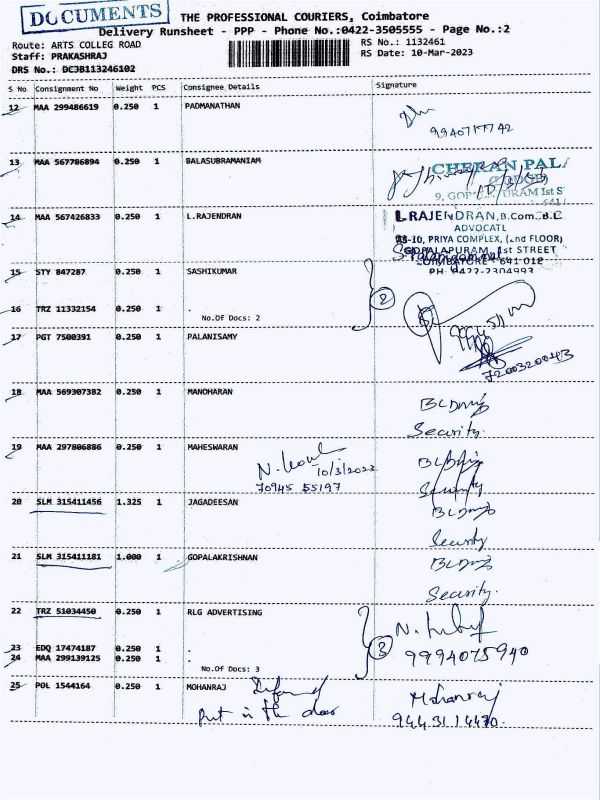 DOCUMENTS
THE PROFESSIONAL COURIERS, Coimbatore
Delivery Runsheet - PPP - Phone No.:0422-3505555 - Page No.:2
Route: ARTS COLLEG ROAD RS No.: 1132461
Staff: PRAKASHRAJ RS Date: 10-Mar-2023
DRS No.: DC3B113246102
S No Consignment No Weight PCS Consignee Details Signature
12 MAA 299486619 0.250 1 PADMANATHAN
13 MAA 567786894 0.250 1 BALASUBRAMANIAM
CHERAN
14 MAA 567426833 0.250 1 L.RAJENDRAN
L.RAJENDRAN, B.Com., B.L
ADVOCATE
PRIYA COMPLEX, (2nd FLOOR)
GOPALAPURAM, 1st STREET
COIMBATORE - 641 018
PH: 0422-2304993
15 STY 847287 0.250 1 SASHIKUMAR
2
16 TRZ 11332154 0.250 1 .
No.Of Docs: 2
17 PGT 7500391 0.250 1 PALANISAMY
7200320043
18 MAA 569307382 0.250 1 MANOHARAN
Security.
19 MAA 297806886 0.250 1 MAHESWARAN
10/3/2023
70945 55197
Security
20 SLM 315411456 1.325 1 JAGADEESAN
Security
21 SLM 315411181 1.000 1 GOPALAKRISHNAN
Security.
22 TRZ 51034450 0.250 1 RLG ADVERTISING
3
23 EDQ 17474187 0.250 1 .
9994075940
24 MAA 299139125 0.250 1 .
No.Of Docs: 3
25 POL 1544164 0.250 1 MOHANRAJ
Mohanraj
Put in the door
94431 14470.